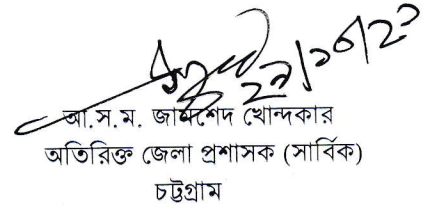 আ.স.ম. জামশেদ খোন্দকার
অতিরিক্ত জেলা প্রশাসক (সার্বিক)
চট্টগ্রাম